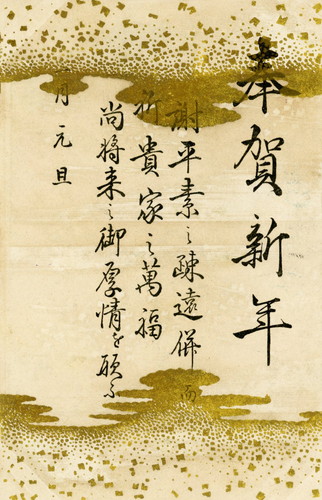 奉賀新年
謝平素之疎遠併而
祈貴家之萬福
尚将来之御厚情を願ふ
月元旦